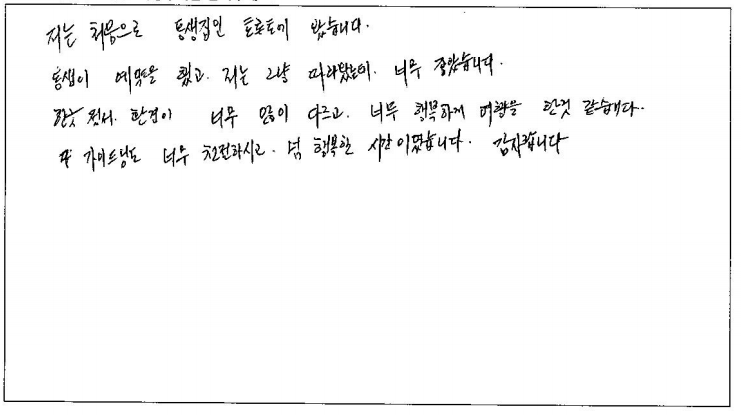 저는 처음으로 동생집인 토론토에 왔습니다.
동생이 예약을 했고. 저는 그냥 따라왔는데. 너무 좋았습니다.
한국 정서. 환경이 너무 많이 다르고. 너무 행복하게 여행을 한것 같습니다.
또 가이드님도 너무 친절하시고. 넘 행복한 시간이였습니다. 감사합니다